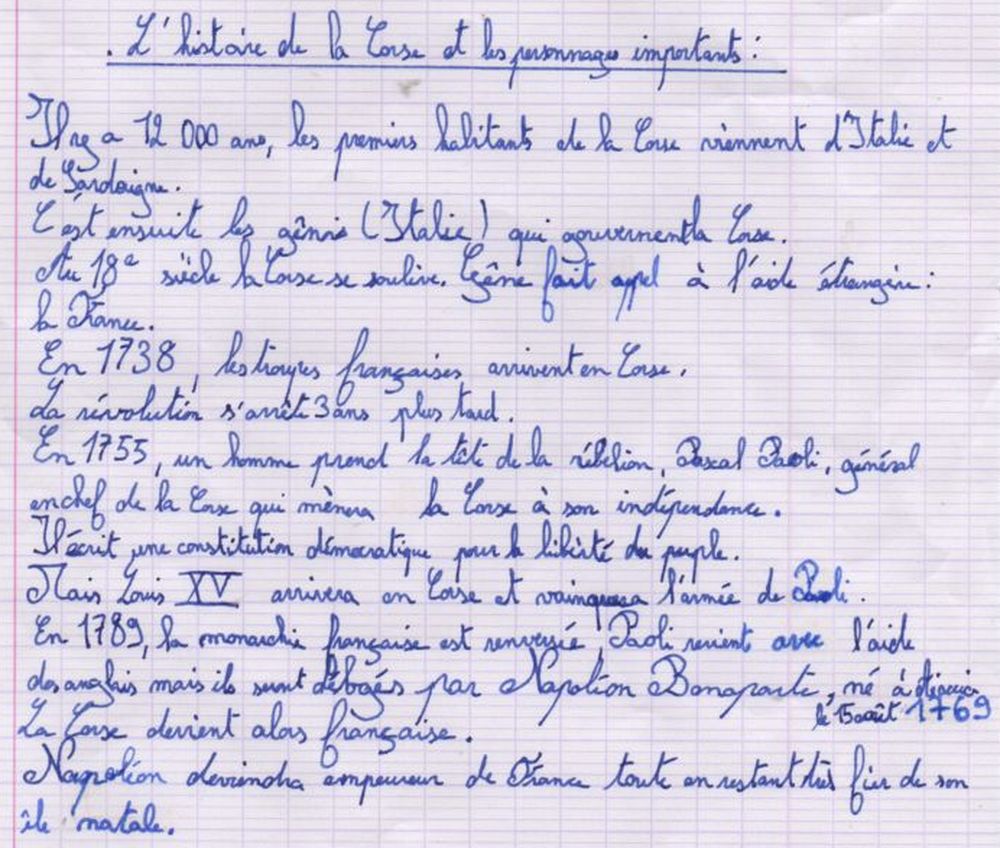 . L'histoire de la Corse et les personnages importants :
Il y a 12 000 ans, les premiers habitants de la Corse viennent d'Italie et
de Sardaigne.
C'est ensuite les gênois (Italie) qui gouvernent la Corse.
Au 18e siècle la Corse se soulève. Gêne fait appel à l'aide étrangère :
la France.
En 1738, les troupes françaises arrivent en Corse.
La révolution s'arrête 3 ans plus tard.
En 1755, un homme prend la tête de la rébelion, Pascal Paoli, général
en chef de la Corse qui mènera la Corse à son indépendance.
Il écrit une constitution démocratique pour la liberté du peuple.
Mais Louis XV arrivera en Corse et vainquera l'armée de Paoli.
En 1789, la monarchie française est renversée, Paoli revient avec l'aide
des anglais mais ils sont par Napoléon Bonaparte, né à Ajaccio
le 15 août 1769
La Corse devient alors française.
Napoléon deviendra empereur de France toute en restant très fier de son
île natale.